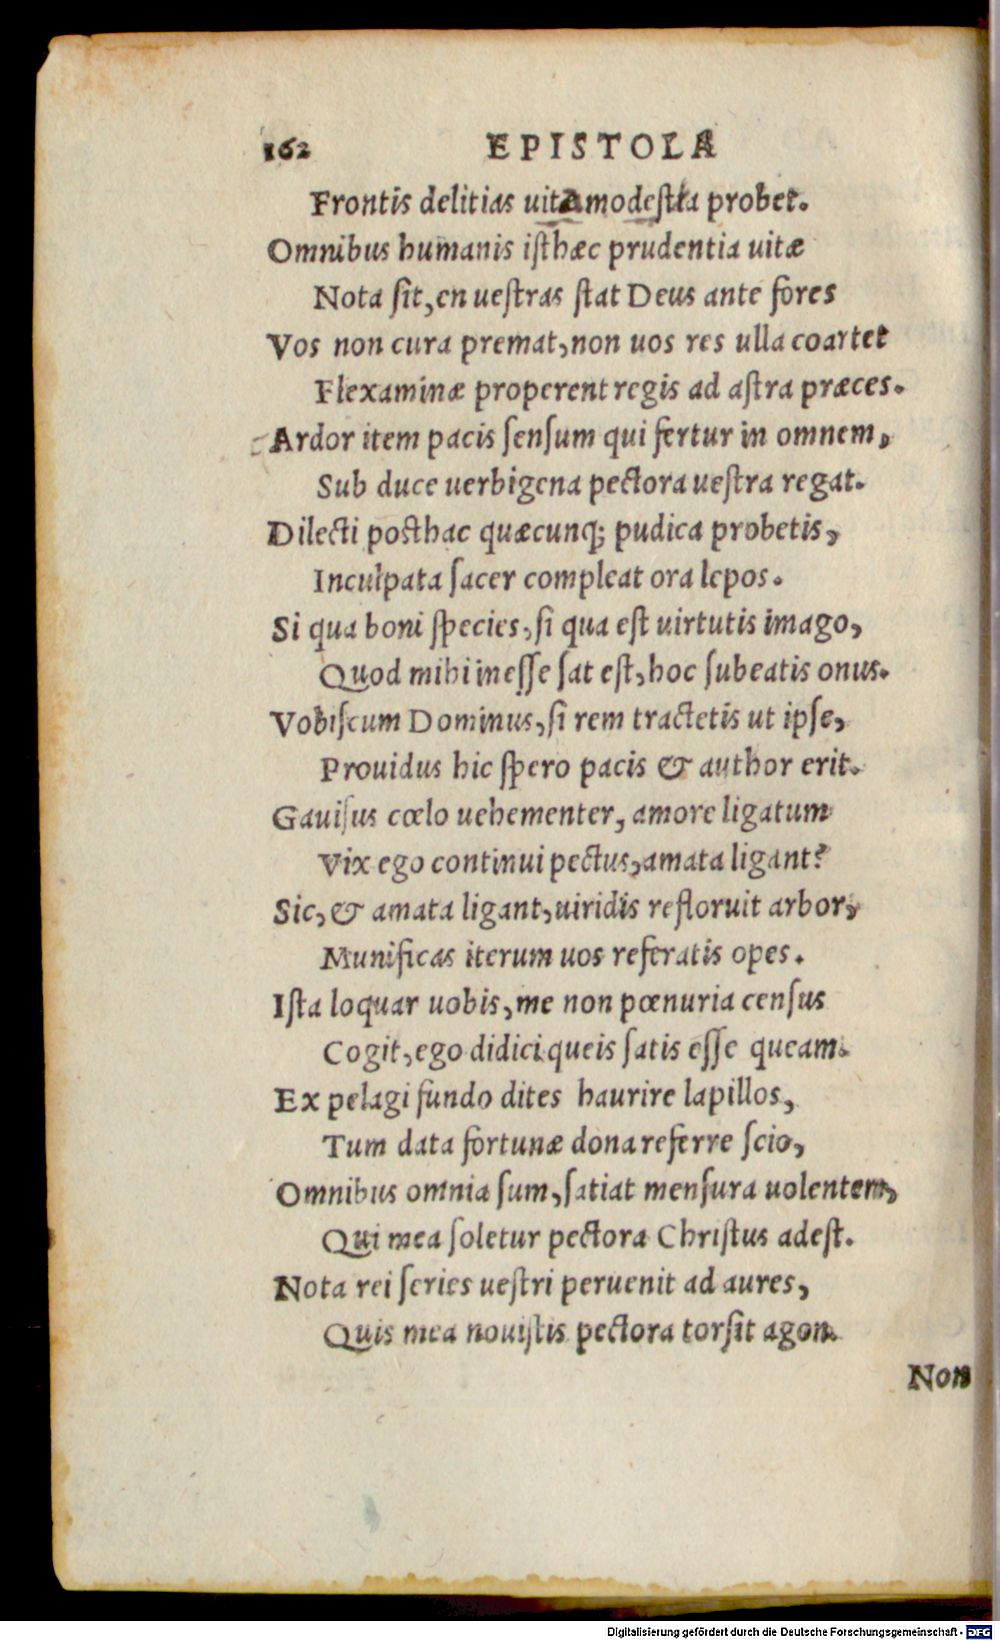 162 EPISTOLA
Frontis delitias uita modestia probet.
Omnibus humanis isthæc prudentia uitæ
Nota sit, en uestras stat Deus ante fores
Vos non cura premat, non uos res ulla coartet
Flexaminæ properent regis ad astra præces.
Ardor item pacis sensum qui fertur in omnem,
Sub duce uerbigena pectora uestra regat.
Dilecti posthac quæcunq; pudica probetis,
Inculpata sacer compleat ora lepos.
Si qua boni species, si qua est uirtutis imago,
Quod mihi inesse sat est, hoc subeatis onus.
Vobiscum Dominus, si rem tractetis ut ipse,
Prouidus hic spero pacis & author erit.
Gauisus cœlo uehementer, amore ligatum
Vix ego continui pectus, amata ligant?
Sic, & amata ligant, uiridis refloruit arbor,
Munificas iterum uos referatis opes.
Ista loquar uobis, me non pœnuria census
Cogit, ego didici queis satis esse queam.
Ex pelagi fundo dites haurire lapillos,
Tum data fortunæ dona referre scio,
Omnibus omnia sum, satiat mensura uolentem,
Qui mea soletur pectora Christus adest.
Nota rei series uestri peruenit ad aures,
Quis mea nouistis pectora torsit agon.
Non
Digitalisierung gefördert durch die Deutsche Forschungsgemeinschaft - DFG